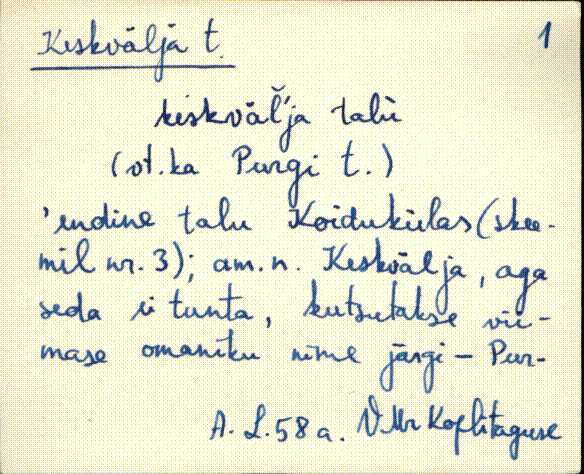 Keskvälja t. 1
keskväl̆'ja talù
(vt. ka Purgi t.)
'endine talu Koidukülas (skee-
mil nr. 3); am. n. Keskvälja, aga
seda ei tunta, kutsutakse vii-
mase omaniku nime järgi – Pur-
A. L. 58 a. VMr Koplitaguse